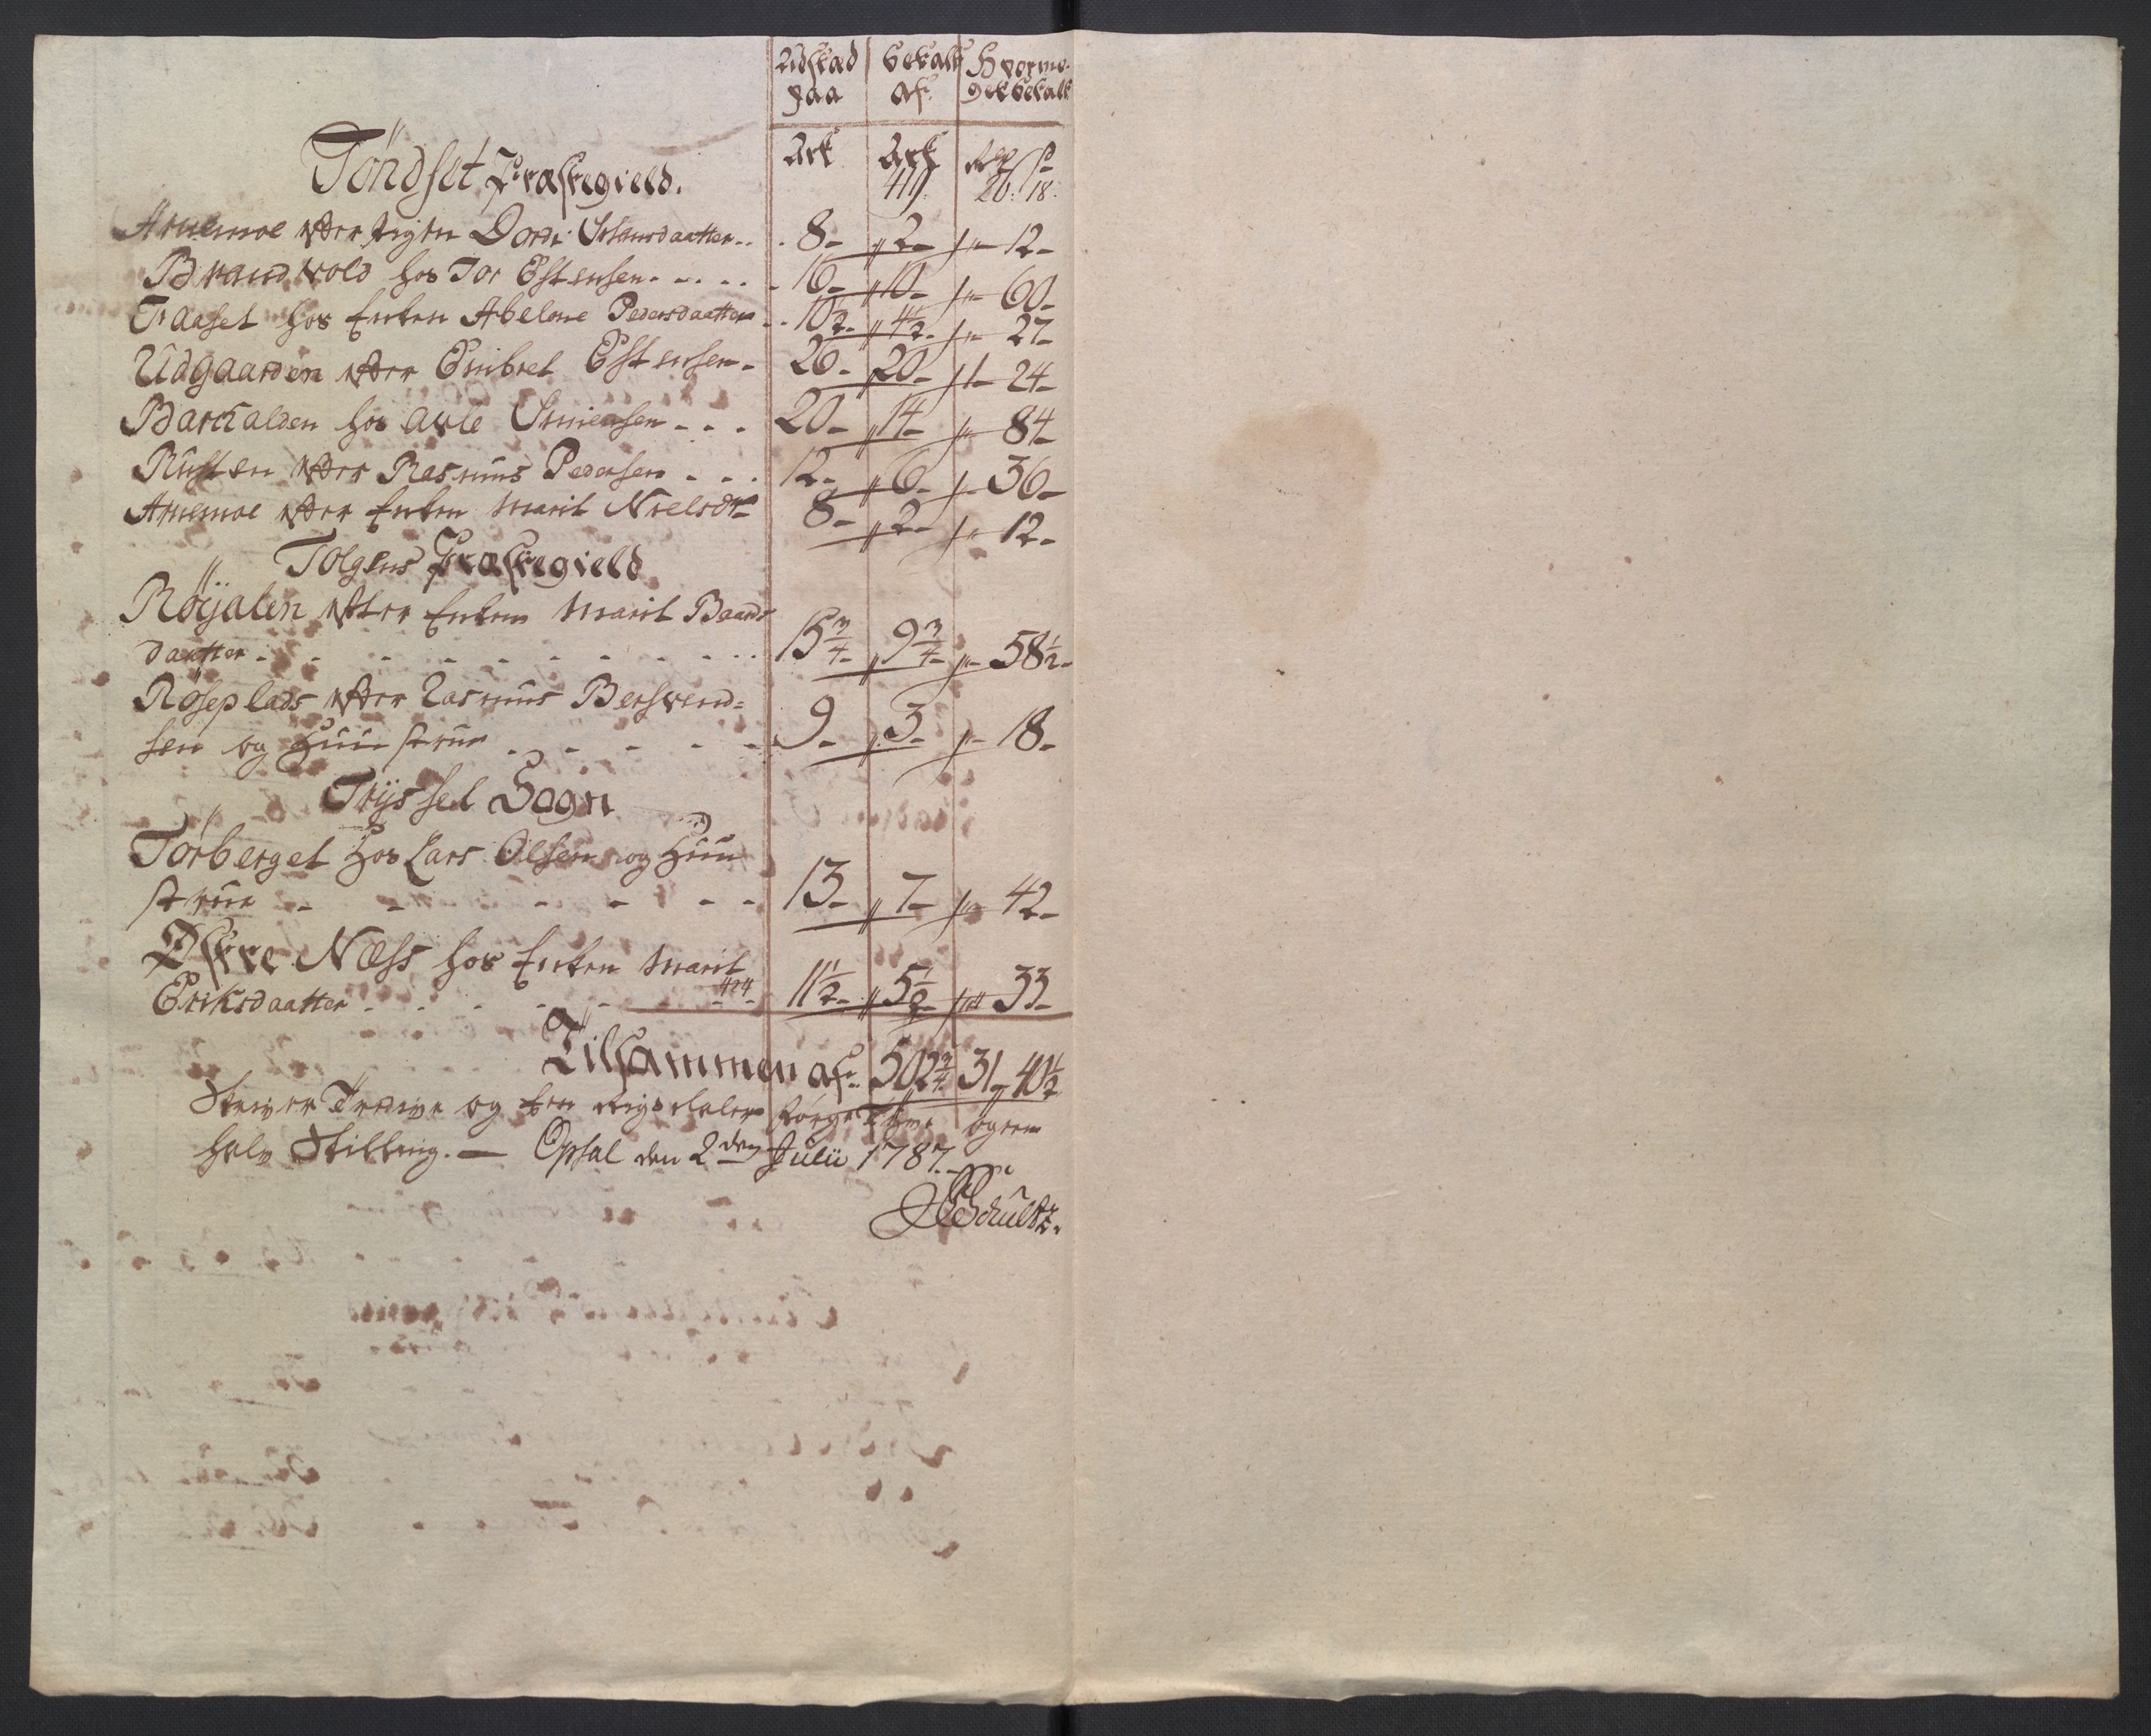 Udstæd paa | betalt af | Hvorme- get betalt
Ark | Ark | Rdr s
Töndset Præstegield. 411 | 26: 18:
Arnemoe efter pigen Dordi Johansdaatter.. 8- 2- 12-
Brandvold hos Tor Estensen..... 16- 10- 60-
Traaset hos Enken Abelone Pedersdaatter.. 10½- 4½- 27-
Udgaarden efter Embret Estensen- 26- 20- 1- 24-
Barckalden hos Avle Simensen - - - 20- 14- 84-
Rusten efter Rasmus Pedersen - - - 12- 6- 36-
Arnemoe efter Enken Marit Nielsdtr 8- 2- 12-
Tolgens Præstegield
Röÿalen efter Enken Marit Baards
daatter - - - - - - - - - 15¾- 9¾- 58½-
Röseplads efter Rasmus Berswend=
sen og Huustrue - - - - - 9- 3- 18-
Trÿssel Sogn
Törberget Hos Lars Olsen og Huu
strue - - - - - - 13- 7- 42-
Østre Næss hos Enken Marit
Eriksdaatter - - - - - - 11½- 5½- 33-
Tilsammen af 502¾ 31- 40½
Skriver Tredive og Een Rigsdaler Förge Tÿve og een
halv Skilling. — Opsal den 2den Julii 1787.
Schultz.